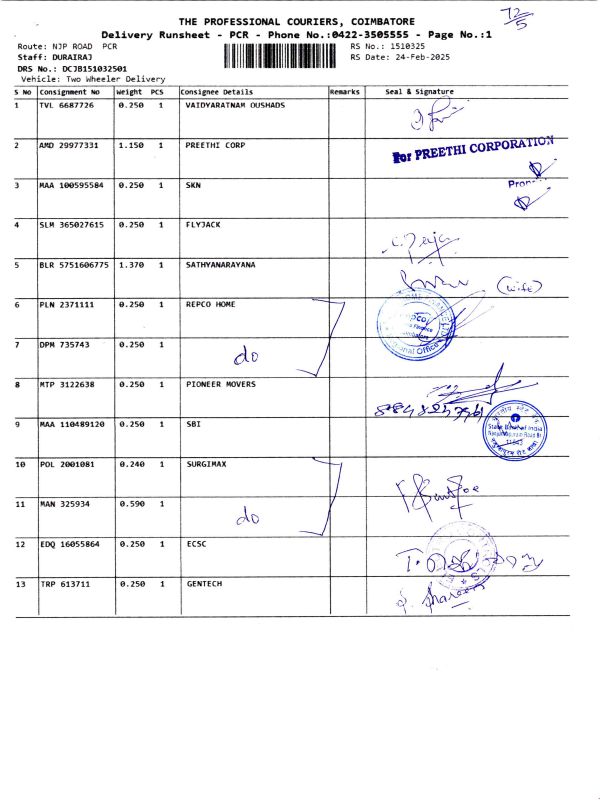 72/5
THE PROFESSIONAL COURIERS, COIMBATORE
Delivery Runsheet - PCR - Phone No.:0422-3505555 - Page No.:1
Route: NJP ROAD PCR
RS No.: 1510325
Staff: DURAIRAJ
RS Date: 24-Feb-2025
DRS No.: DCJB151032501
Vehicle: Two Wheeler Delivery
S No Consignment No Weight PCS Consignee Details Remarks Seal & Signature
1 TVL 6687726 0.250 1 VAIDYARATNAM OUSHADS
2 AMD 29977331 1.150 1 PREETHI CORP
For PREETHI CORPORATION
3 MAA 100595584 0.250 1 SKN
4 SLM 365027615 0.250 1 FLYJACK
5 BLR 5751606775 1.370 1 SATHYANARAYANA
(wife)
6 PLN 2371111 0.250 1 REPCO HOME
7 DPM 735743 0.250 1 do
8 MTP 3122638 0.250 1 PIONEER MOVERS
9 MAA 110489120 0.250 1 SBI
State Bank of India
10 POL 2001081 0.240 1 SURGIMAX
11 MAN 325934 0.590 1 do
12 EDQ 16055864 0.250 1 ECSC
13 TRP 613711 0.250 1 GENTECH